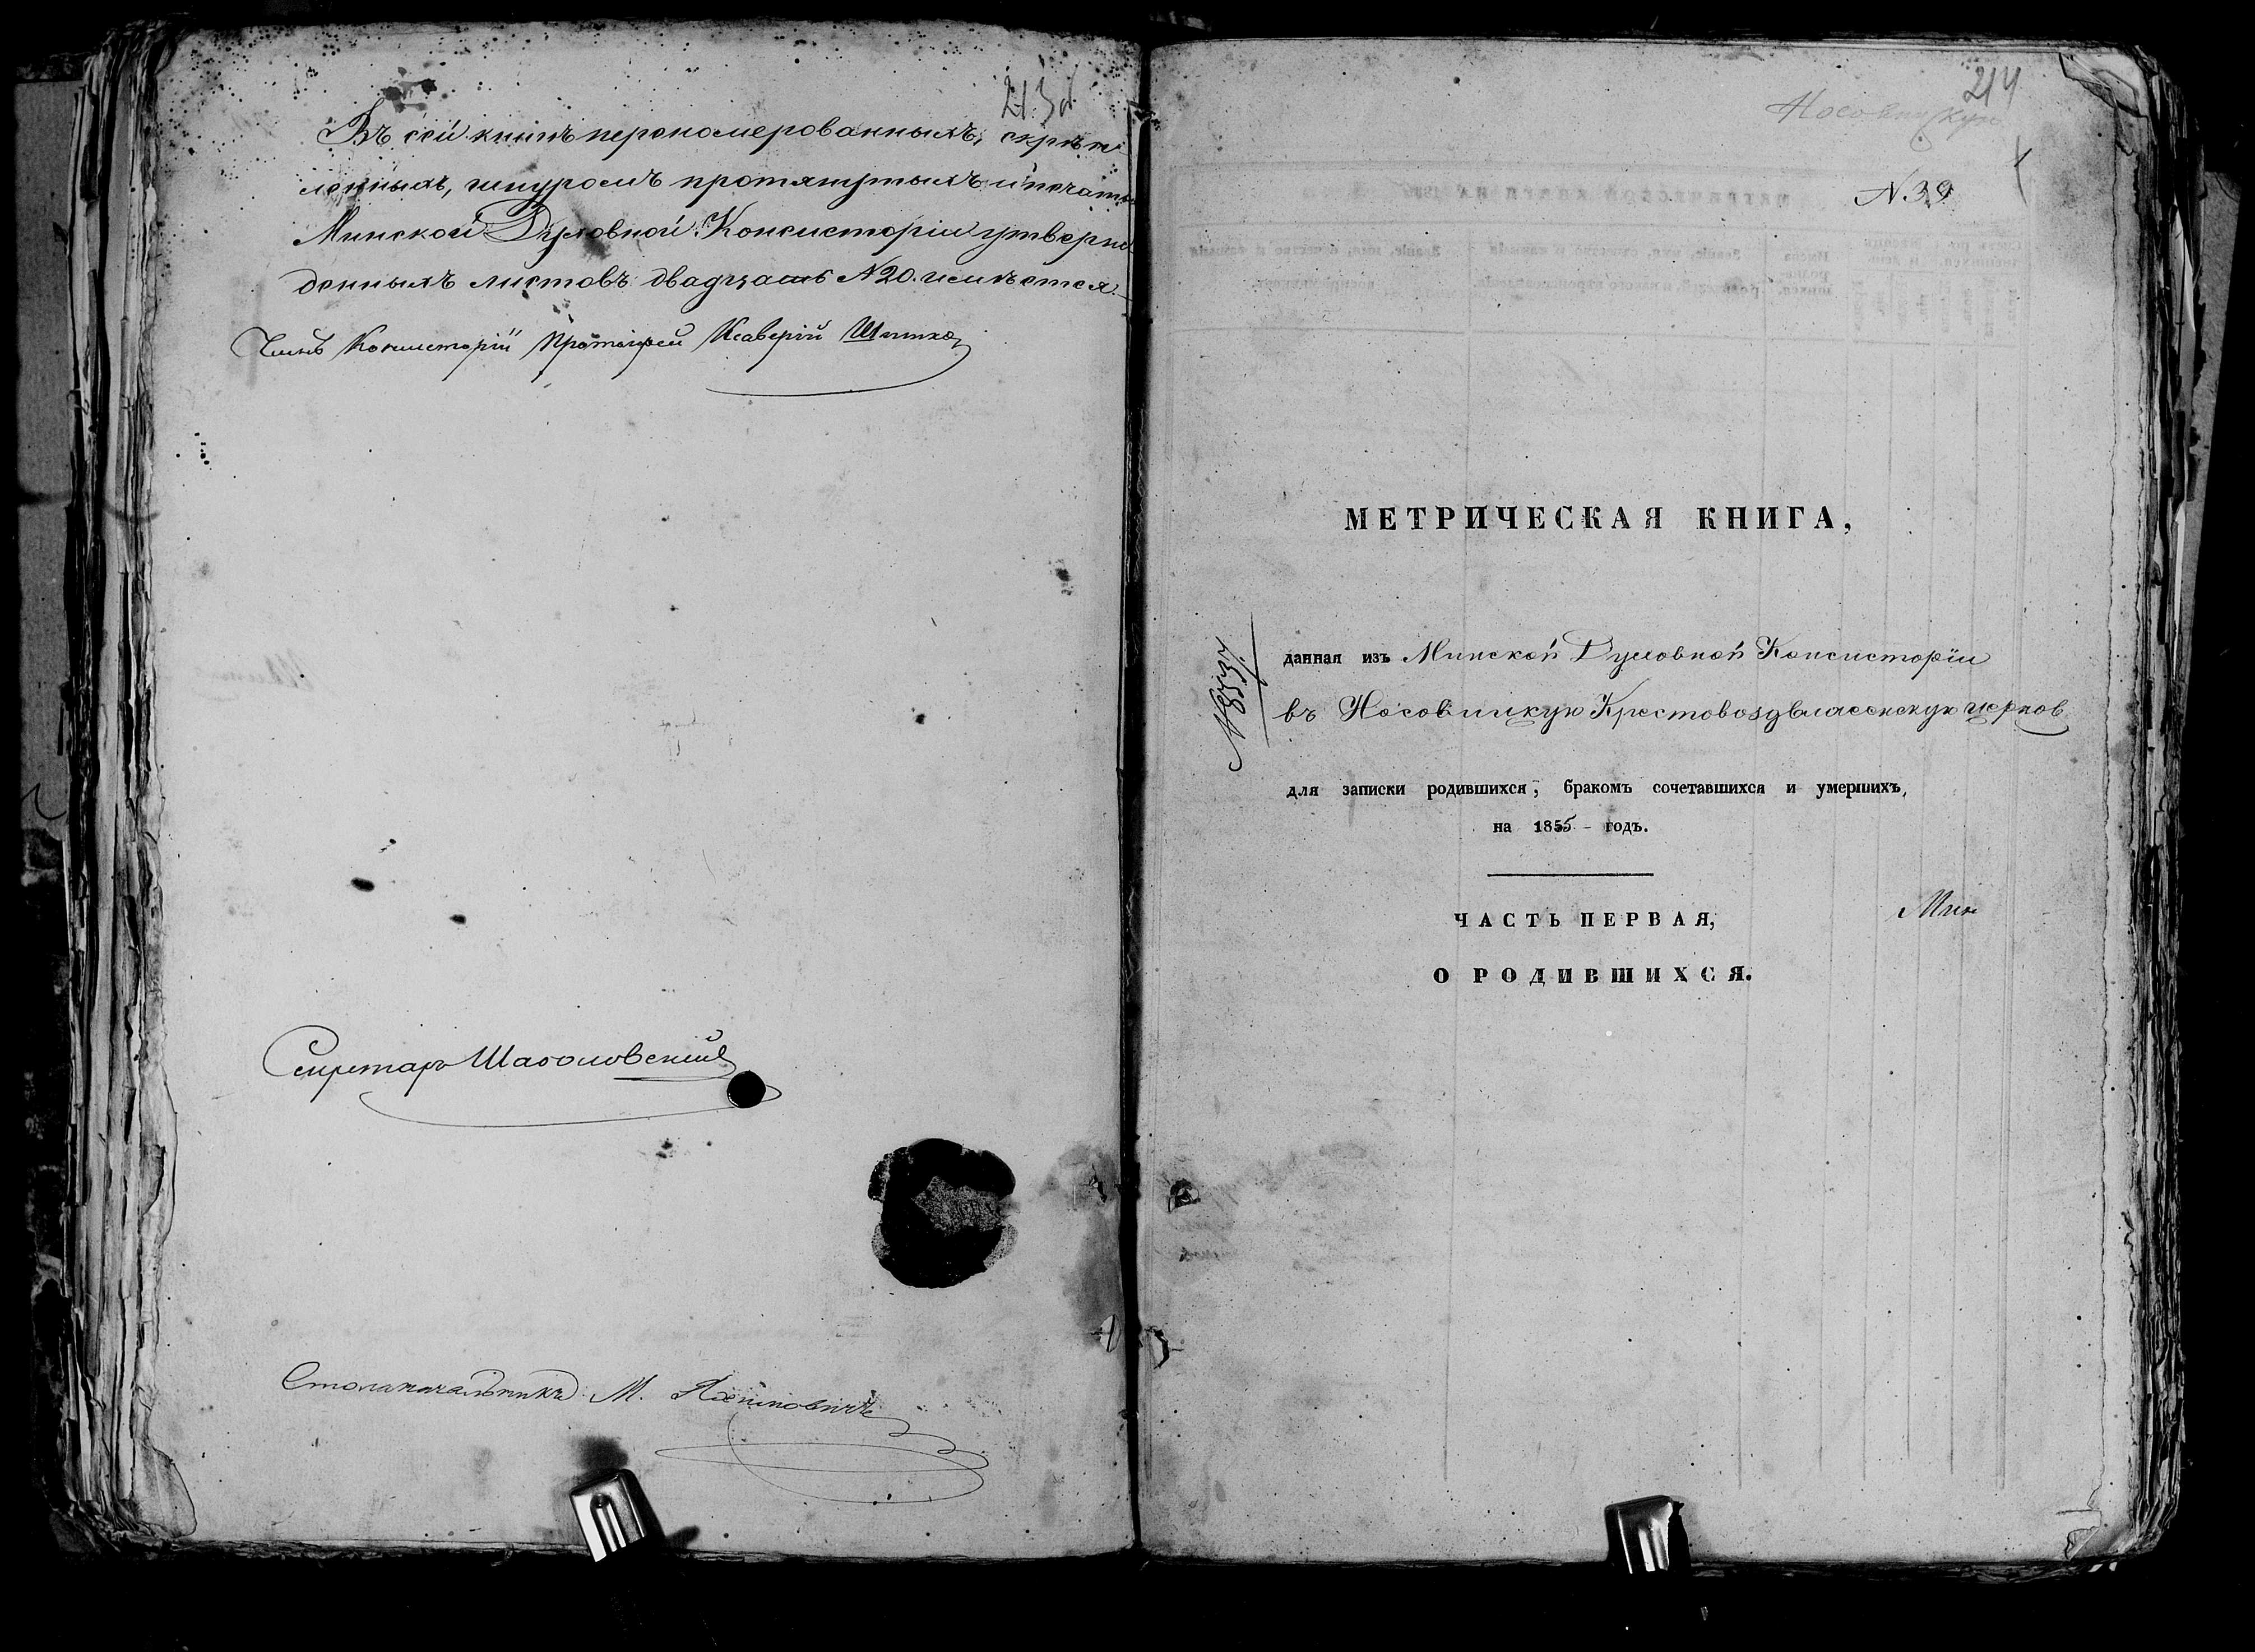 213об
Въ сей книгѣ перономерованныхъ, скрѣп
ленныхъ, шнуромъ протянутыхъ и печатью
Минской Духовной Консисторіи утверж
денныхъ листовъ двадцать N 20. имѣется.
Членъ Консисторіи Протоіерей Ксаверій
Секретарь
Столоначальникъ М.
214
Носовицкую
N 39
МЕТРИЧЕСКАЯ КНИГА,
данная изъ Минской Духовной Консисторіи
въ Носовицкую Крестовоздвиженскую церков
для записки родившихся, бракомъ сочетавшихся и умершихъ,
на 1855 годъ.
ЧАСТЬ ПЕРВАЯ,
Мин
О РОДИВШИХСЯ.